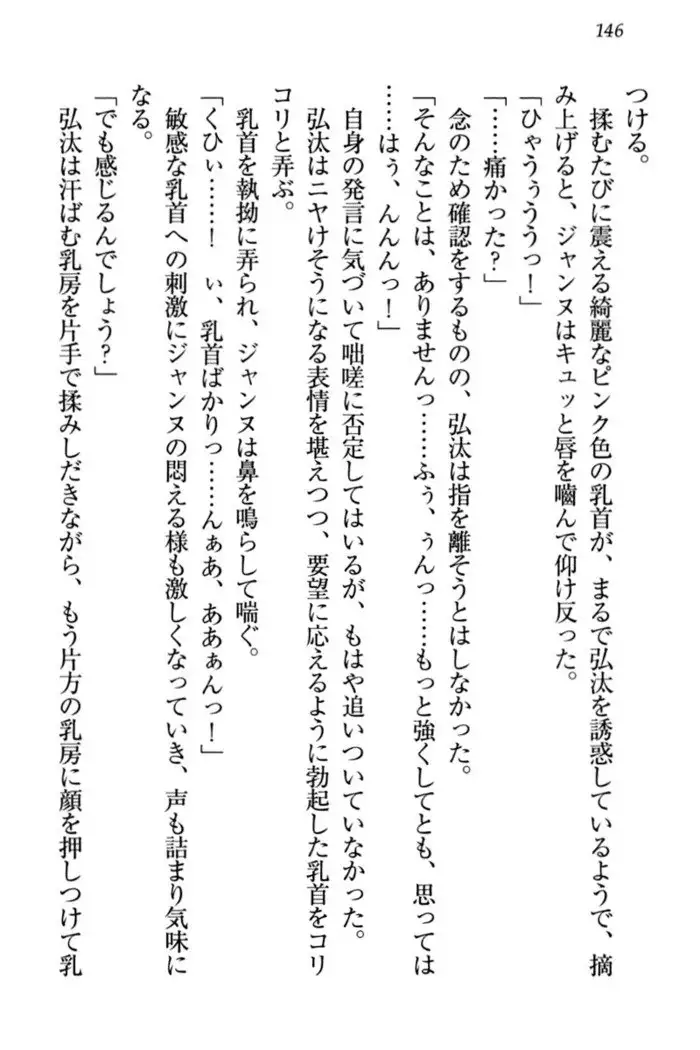 146
つける。
揉むたびに震える綺麗なピンク色の乳首が、まるで弘汰を誘惑しているようで、摘
み上げると、ジャンヌはキュッと唇を噛んで仰け反った。
「ひゃうぅううっ！」
「……痛かった？」
念のため確認をするものの、弘汰は指を離そうとはしなかった。
「そんなことは、ありませんっ……ふぅ、ぅんっ……もっと強くしてとも、思っては
……はぅ、んんんっ！」
自身の発言に気づいて咄嗟に否定してはいるが、もはや追いついていなかった。
弘汰はニヤけそうになる表情を堪えつつ、要望に応えるように勃起した乳首をコリ
コリと弄ぶ。
乳首を執拗に弄られ、ジャンヌは鼻を鳴らして喘ぐ。
「くひぃ……！　ぃ、乳首ばかりっ……んぁあ、ああぁんっ！」
敏感な乳首への刺激にジャンヌの悶える様も激しくなっていき、声も詰まり気味に
なる。
「でも感じるんでしょう？」
弘汰は汗ばむ乳房を片手で揉みしだきながら、もう片方の乳房に顔を押しつけて乳